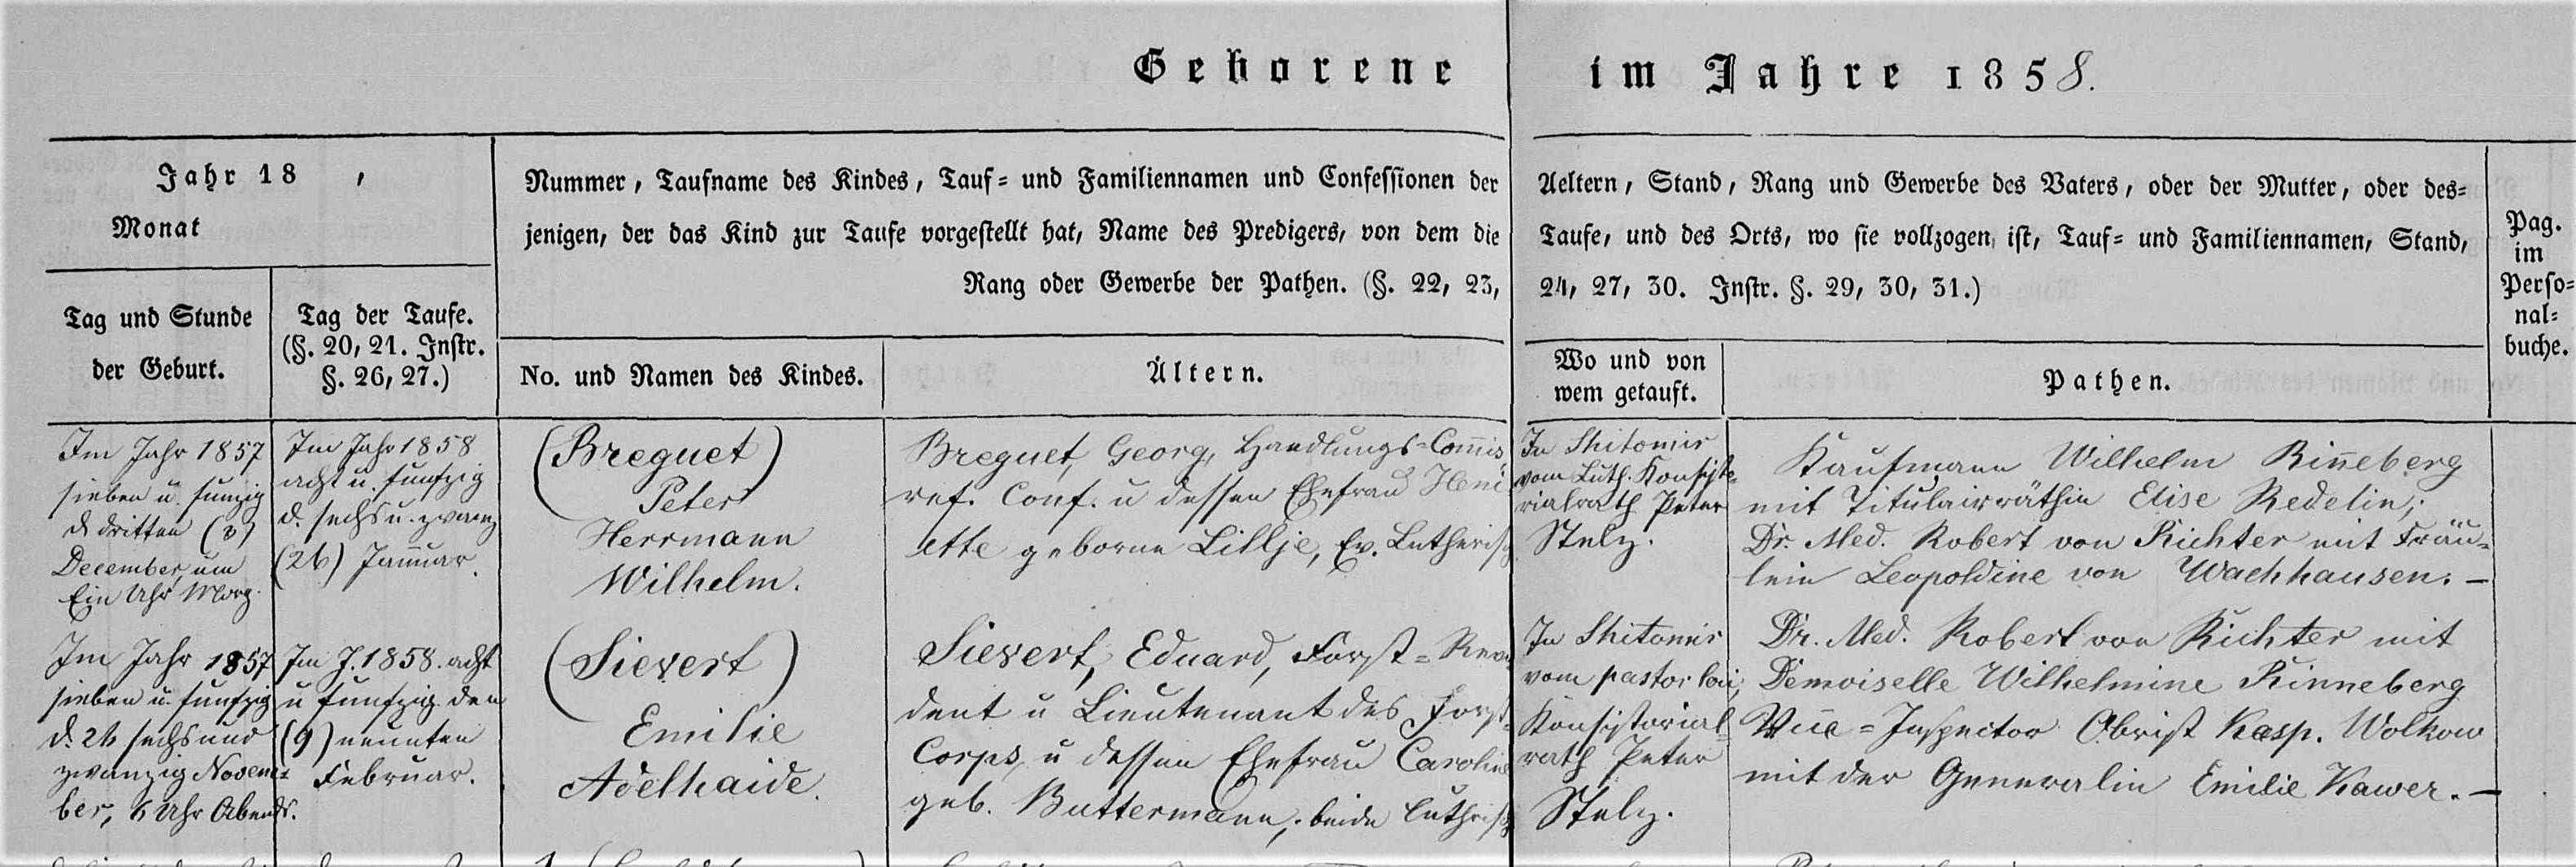 Geborene im Jahre 1858.
Jahr 18 ,
Monat
Tag und Stunde
der Geburt.
Tag der Taufe.
(§. 20, 21. Instr.
§. 26, 27.)
Nummer, Taufname des Kindes, Tauf- und Familiennamen und Confessionen der Aeltern, Stand, Rang und Gewerbe des Vaters, oder der Mutter, oder des-
jenigen, der das Kind zur Taufe vorgestellt hat, Name des Predigers, von dem die Taufe, und des Orts, wo sie vollzogen ist, Tauf- und Familiennamen, Stand,
Rang oder Gewerbe der Pathen. (§. 22, 23, 24, 27, 30. Instr. §. 29, 30, 31.)
No. und Namen des Kindes.
Ältern.
Wo und von
wem getauft.
Pathen.
Pag.
im
Perso-
nal-
buche.
Im Jahr 1857
sieben u. funzig
d dritten (3)
December, um
Ein Uhr Morg.
Im Jahr 1858
acht u. funfzig
d. sechs u. zwanz
(26) Januar.
(Breguet)
Peter
Herrmann
Wilhelm.
Breguet, Georg, Handlungs-Commis
ref. Conf. u dessen Ehefrau Henri
ette geborne Lillje, Ev. Lutherisch
In Shitomir
vom Luth. Konsisto-
rialrath Peter
Stelz.
Kaufmann Wilhelm Rinneberg
mit Titulairräthin Elise Redelin;
Dr. Med. Robert von Richter mit Fräu-
lein Leopoldine von Wachhausen. —
Im Jahr 1857
sieben u. funfzig
d. 26 sechs und
zwanzig Novem-
ber, 6 Uhr Abends.
Im J. 1858. acht
u funfzig den
(9) neunten
Februar.
(Sievert)
Emilie
Adelhaide.
Sievert, Eduard, Forst-Revi
dent u Lieutenant des Forst-
Corps, u dessen Ehefrau Caroline
geb. Buttermann, beide luthrisch
In Shitomir
vom pastor loci,
Konsistorial-
rath Peter
Stelz.
Dr. Med. Robert von Richter mit
Demoiselle Wilhelmine Rinneberg
Vice-Inspector Obrist Kasp. Wolkow
mit der Generalin Emilie Kawer. —